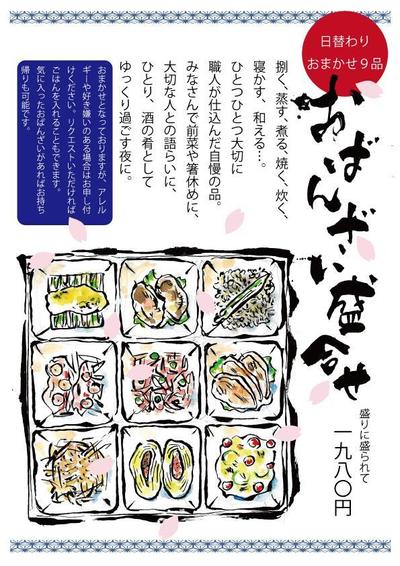 日替わり
おまかせ9品
おばんざい盛合せ
盛りに盛られて
一九八〇円
捌く、蒸す、煮る、焼く、炊く、
寝かす、和える…。
ひとつひとつ大切に
職人が仕込んだ自慢の品。
みなさんで前菜や箸休めに、
大切な人との語らいに、
ひとり、酒の肴として
ゆっくり過ごす夜に。
おまかせとなっておりますが、アレル
ギーや好き嫌いのある場合はお申し付
けください。リクエストいただければ
ごはんを入れることもできます。
気に入ったおばんざいがあればお持ち
帰りも可能です。